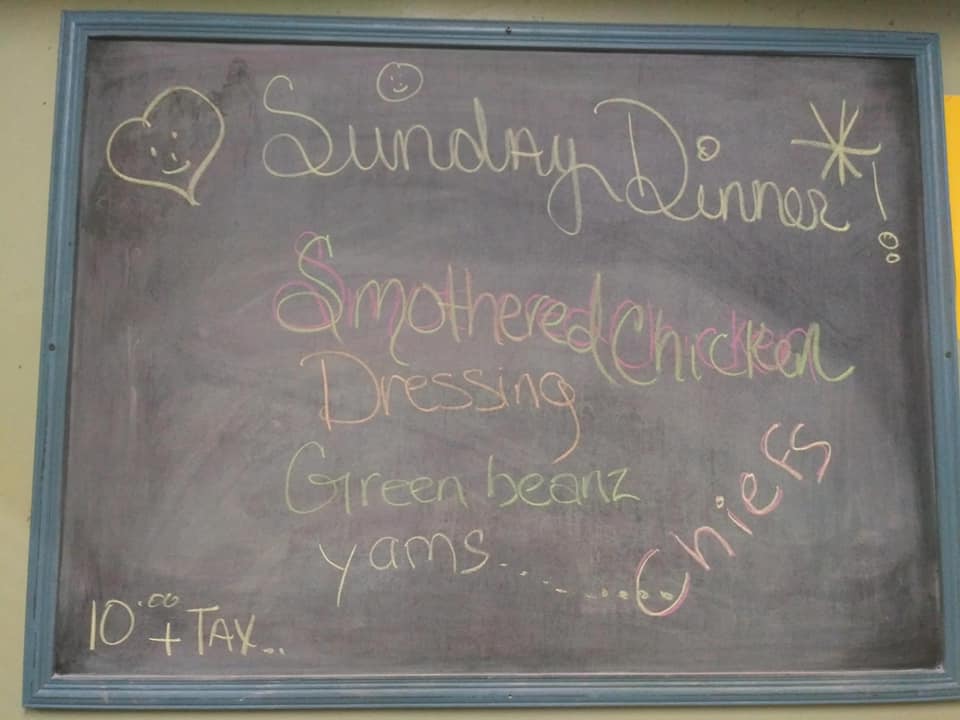 Sunday Dinner!
Smothered Chicken
Dressing
Green beanz
yams........... Chiefs
10.00 + TAX..